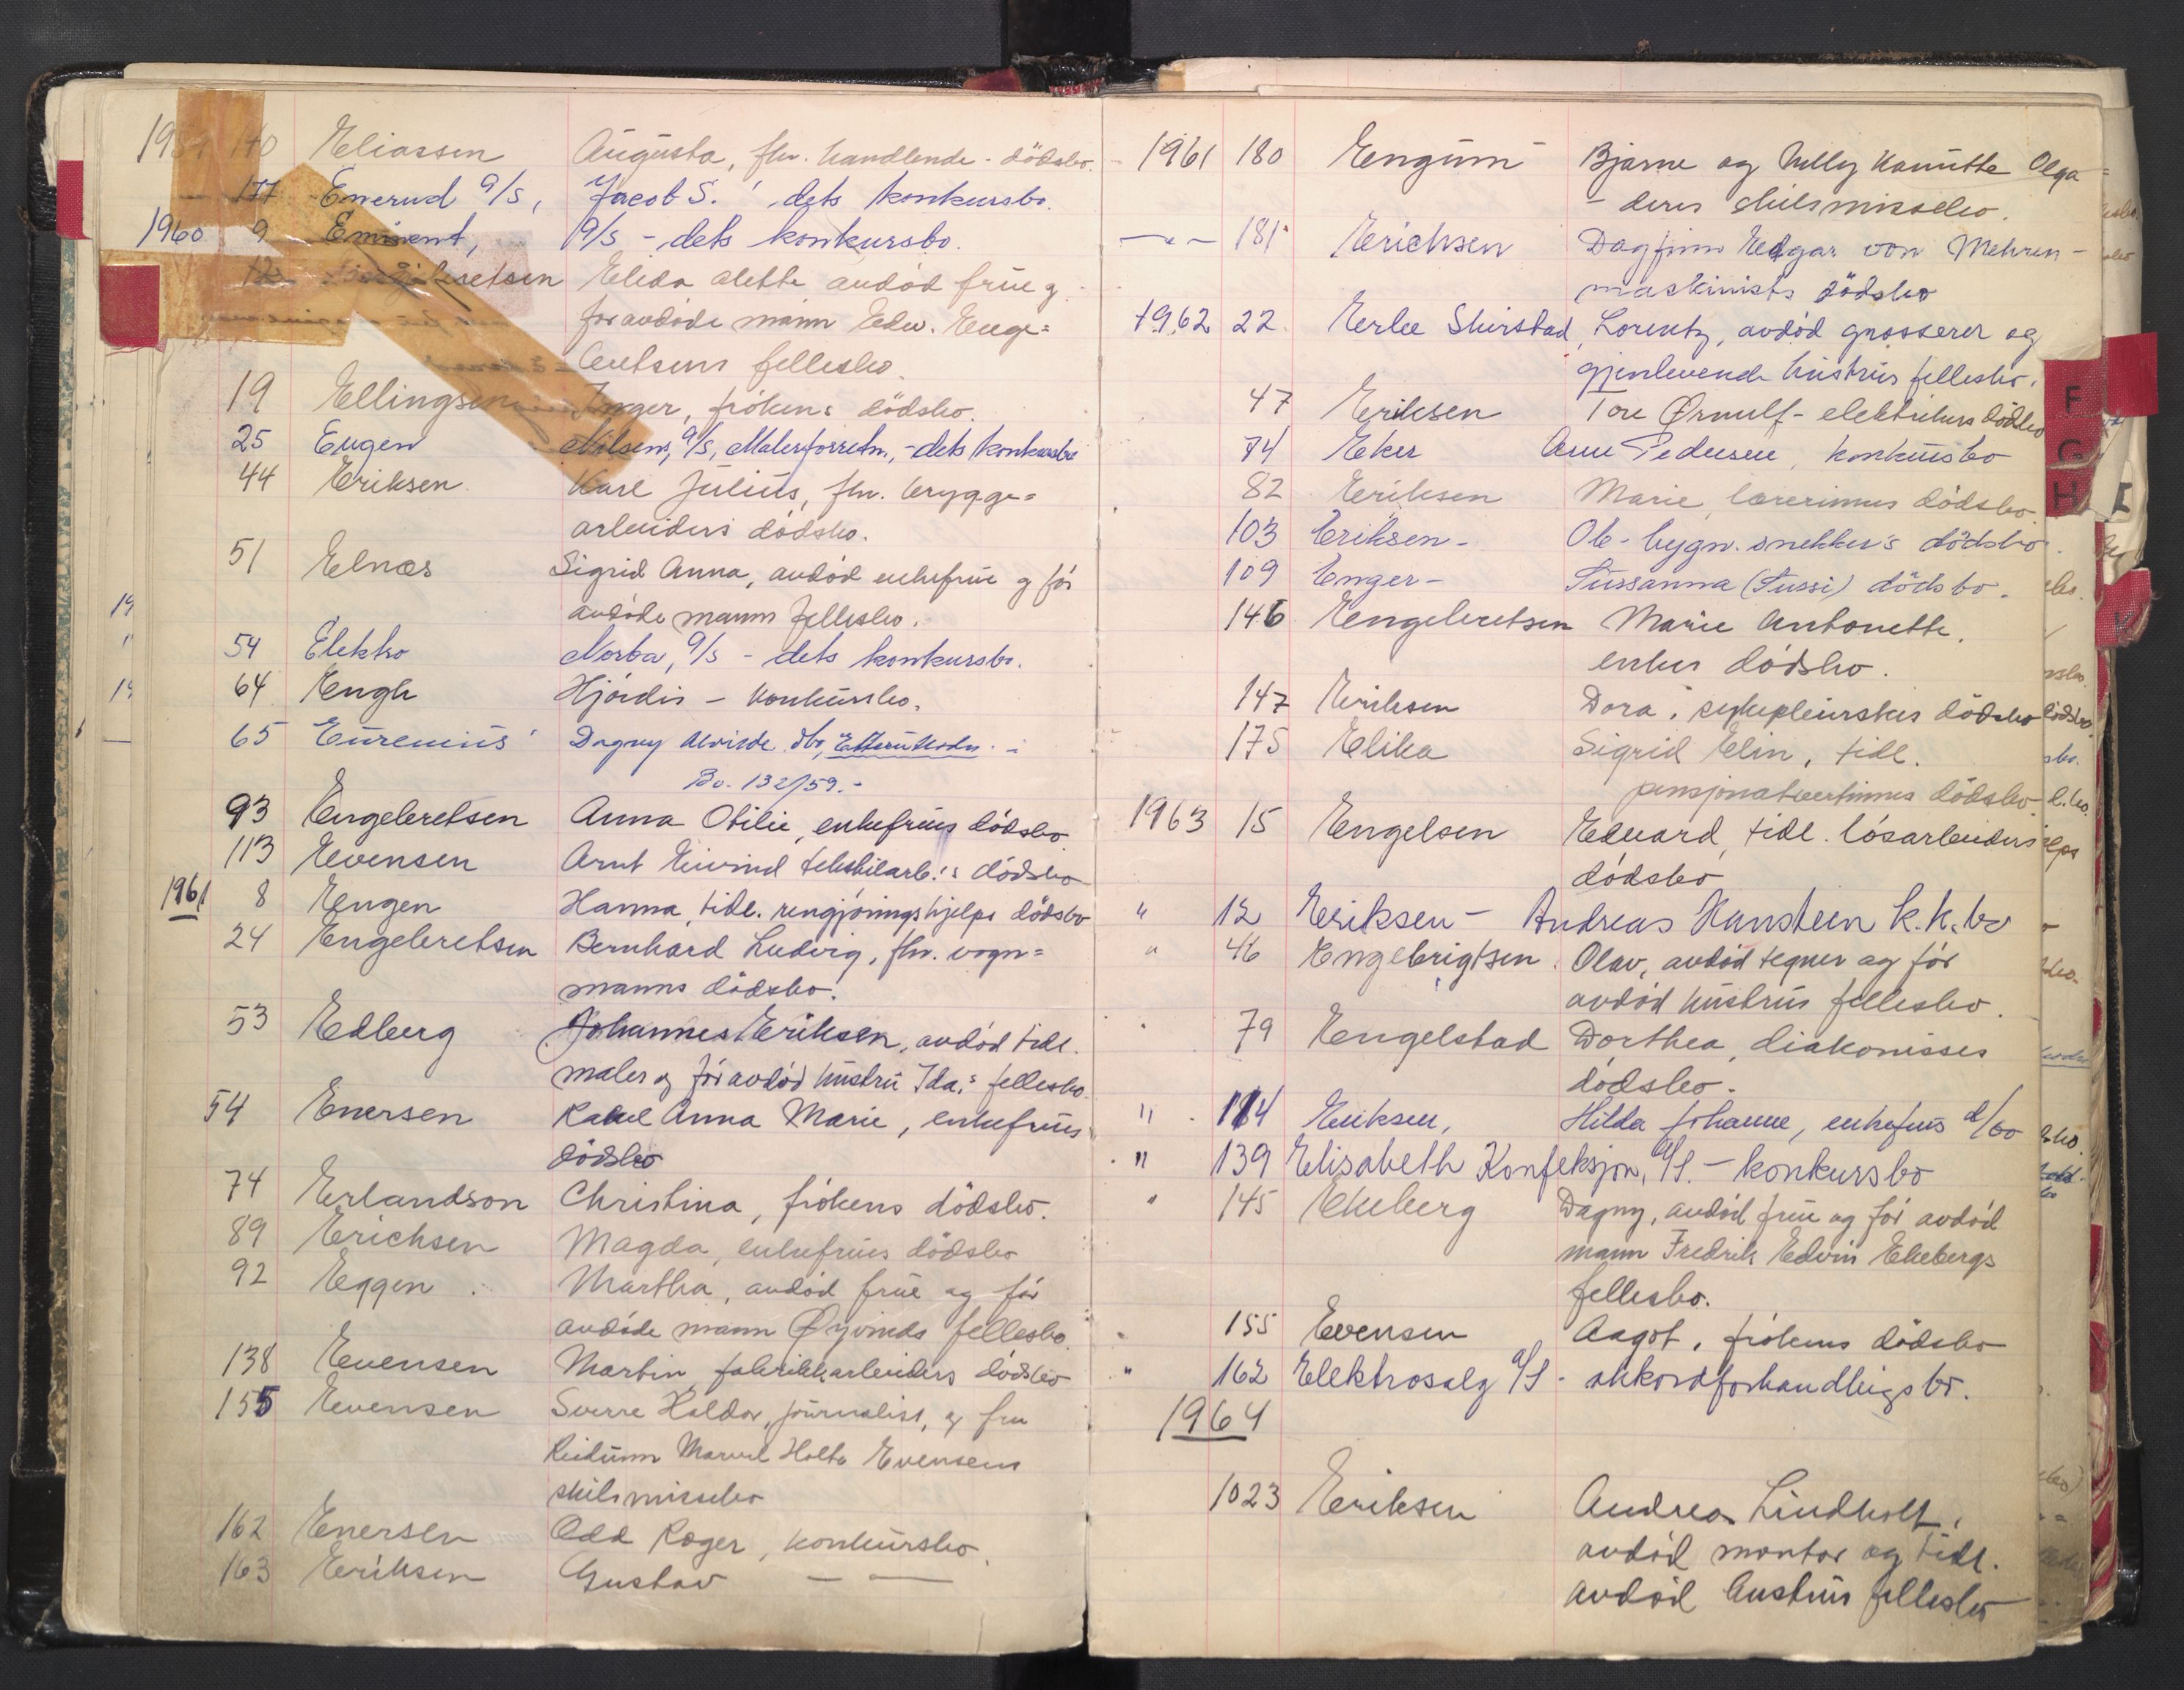 170 Eliassen Augusta, fhv. handlende - dödsbo.
— 177 Enerud A/S, Jacob S. ' dets konkursbo.
1960 9 Eminent, A/S - dets konkursbo.
Elida Alette avdöd frue g
foravdöde mann Edw. Enge=
bretsens fellesbo.
19 Ellingsen Inger, frökens dödsbo.
25 Eugen Nilsen, A/S, Malerforretn., - dets konkursbo
44 Eriksen Karl Julius, fhv. brygge=
arbeiders dödsbo.
51 Elnæs Sigrid Anna, avdöd enkefrue g för
avdöde manns fellesbo.
54 Elektro Norba, A/S - dets konkursbo.
64 Engh Hjördis - konkursbo.
65 Eurenius Dagny Alvilde dbo,
Bo. 132/59.-
93 Engebretsen Anna Otilie, enkefrues dödsbo
113 Evensen Arnt Eivind tekstilarb.'s dödsbo
1961 8 Engen Hanna, tidl. rengjöringshjelps dödsbo
24 Engebretsen Bernhard Ludvig, fhv. vogn=
manns dödsbo.
53 Edberg Johannes Eriksen, avdöd tidl.
maler og för avdöd hustru Ida's fellesbo.
54 Enersen Rakel Anna Marie, enkefrues
dödsbo
74 Erlandson Christina, frökens dödsbo.
89 Erichsen Magda, enkefrues dödsbo
92 Eggen Martha, avdöd frue og för
avdöde mann Øyvinds fellesbo.
138 Evensen Martin fabrikkarbeiders dödsbo
155 Evensen Sverre Haldor, journalist, og fru
Reidunn Holte Evensens
skilsmissebo
162 Enersen Odd Roger, konkursbo.
163 Eriksen Gustav — —
1961 180 Engum Bjarne og Nelly Kamitte Olga
- deres skilsmissebo.
—"— 181 Erichsen Dagfinn Edgar von Mehren -
maskinists dödsbo
1962 22 Erlee Skirstad, Lorentz, avdöd grosserer og
gjenlevende hustrus fellesbo.
47 Eriksen Tore Ørnulf - elektrikers dödsbo
74 Eker Arne Pedersen, konkursbo
82 Eriksen Marie, lærerinnes dödsbo
103 Eriksen - Ole - bygn. snekker's dödsbo.
109 Enger - Sussanna (Sussi) dödsbo.
146 Engebretsen Marie Antonette,
enkes dödsbo.
147 Eriksen Dora, sykepleierskes dödsbo
175 Elika Sigrid Elin, tidl.
pensjonatvertinnes dödsbo
1963 15 Engelsen Edvard, tidl. lösarbeiders
dödsbo
" 12 Eriksen - Andreas Hansteen k.k.bo
" 46 Engebrigtsen Olav, avdöd tegner og för
avdöd hustrus fellesbo.
79 Engelstad Dorthea, diakonisses
dödsbo.
" 114 Eriksen, Hilda Johanne, enkefrues d/bo
" 139 Elisabeth Konfeksjon, A/S. - konkursbo
" 145 Ekeberg Dagny, avdöd frue og för avdöd
mann Fredrik Edvin Ekebergs
fellesbo.
155 Evensen Aagot, frökens dödsbo
" 162 Elektrosalg A/S - akkordforhandlingsbo.
1964
1023 Eriksen Andreas Lindholt,
avdöd montör og tidl.
avdöd hustrus fellesbo
F
G
H
I